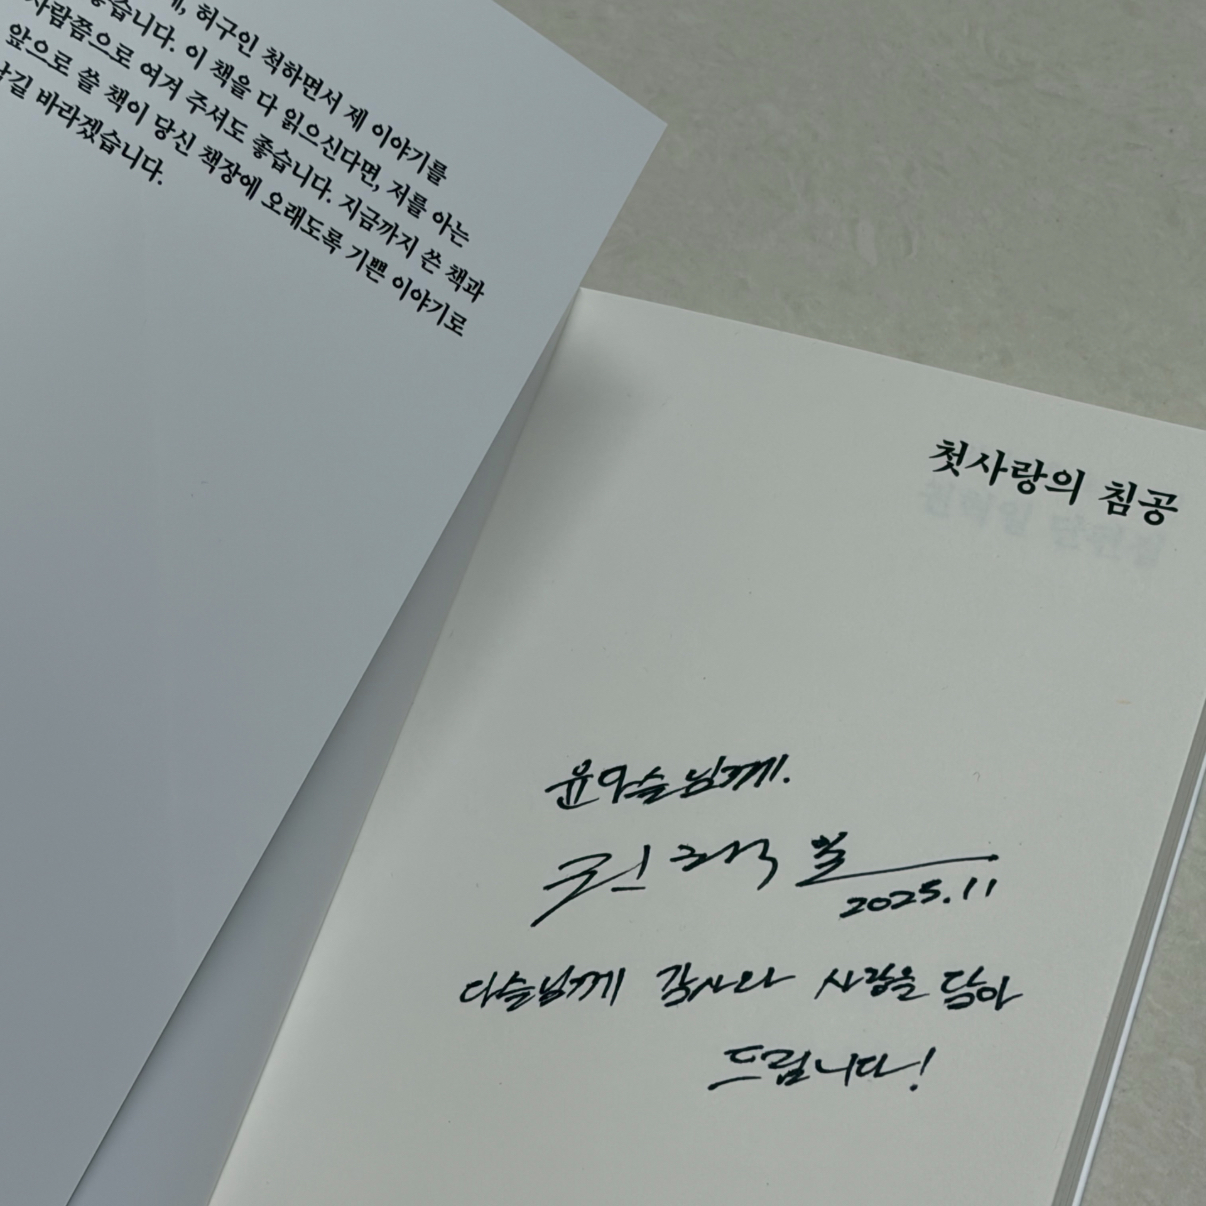 허구인 척하면서 제 이야기를
좋습니다. 이 책을 다 읽으신다면, 저를 아는
사람쯤으로 여겨 주셔도 좋습니다. 지금까지 쓴 책과
앞으로 쓸 책이 당신 책장에 오래도록 기쁜 이야기로
남길 바라겠습니다.
첫사랑의 침공
윤다슬님께.
권혁일
2025.11
다슬님께 감사와 사랑을 담아
드립니다!